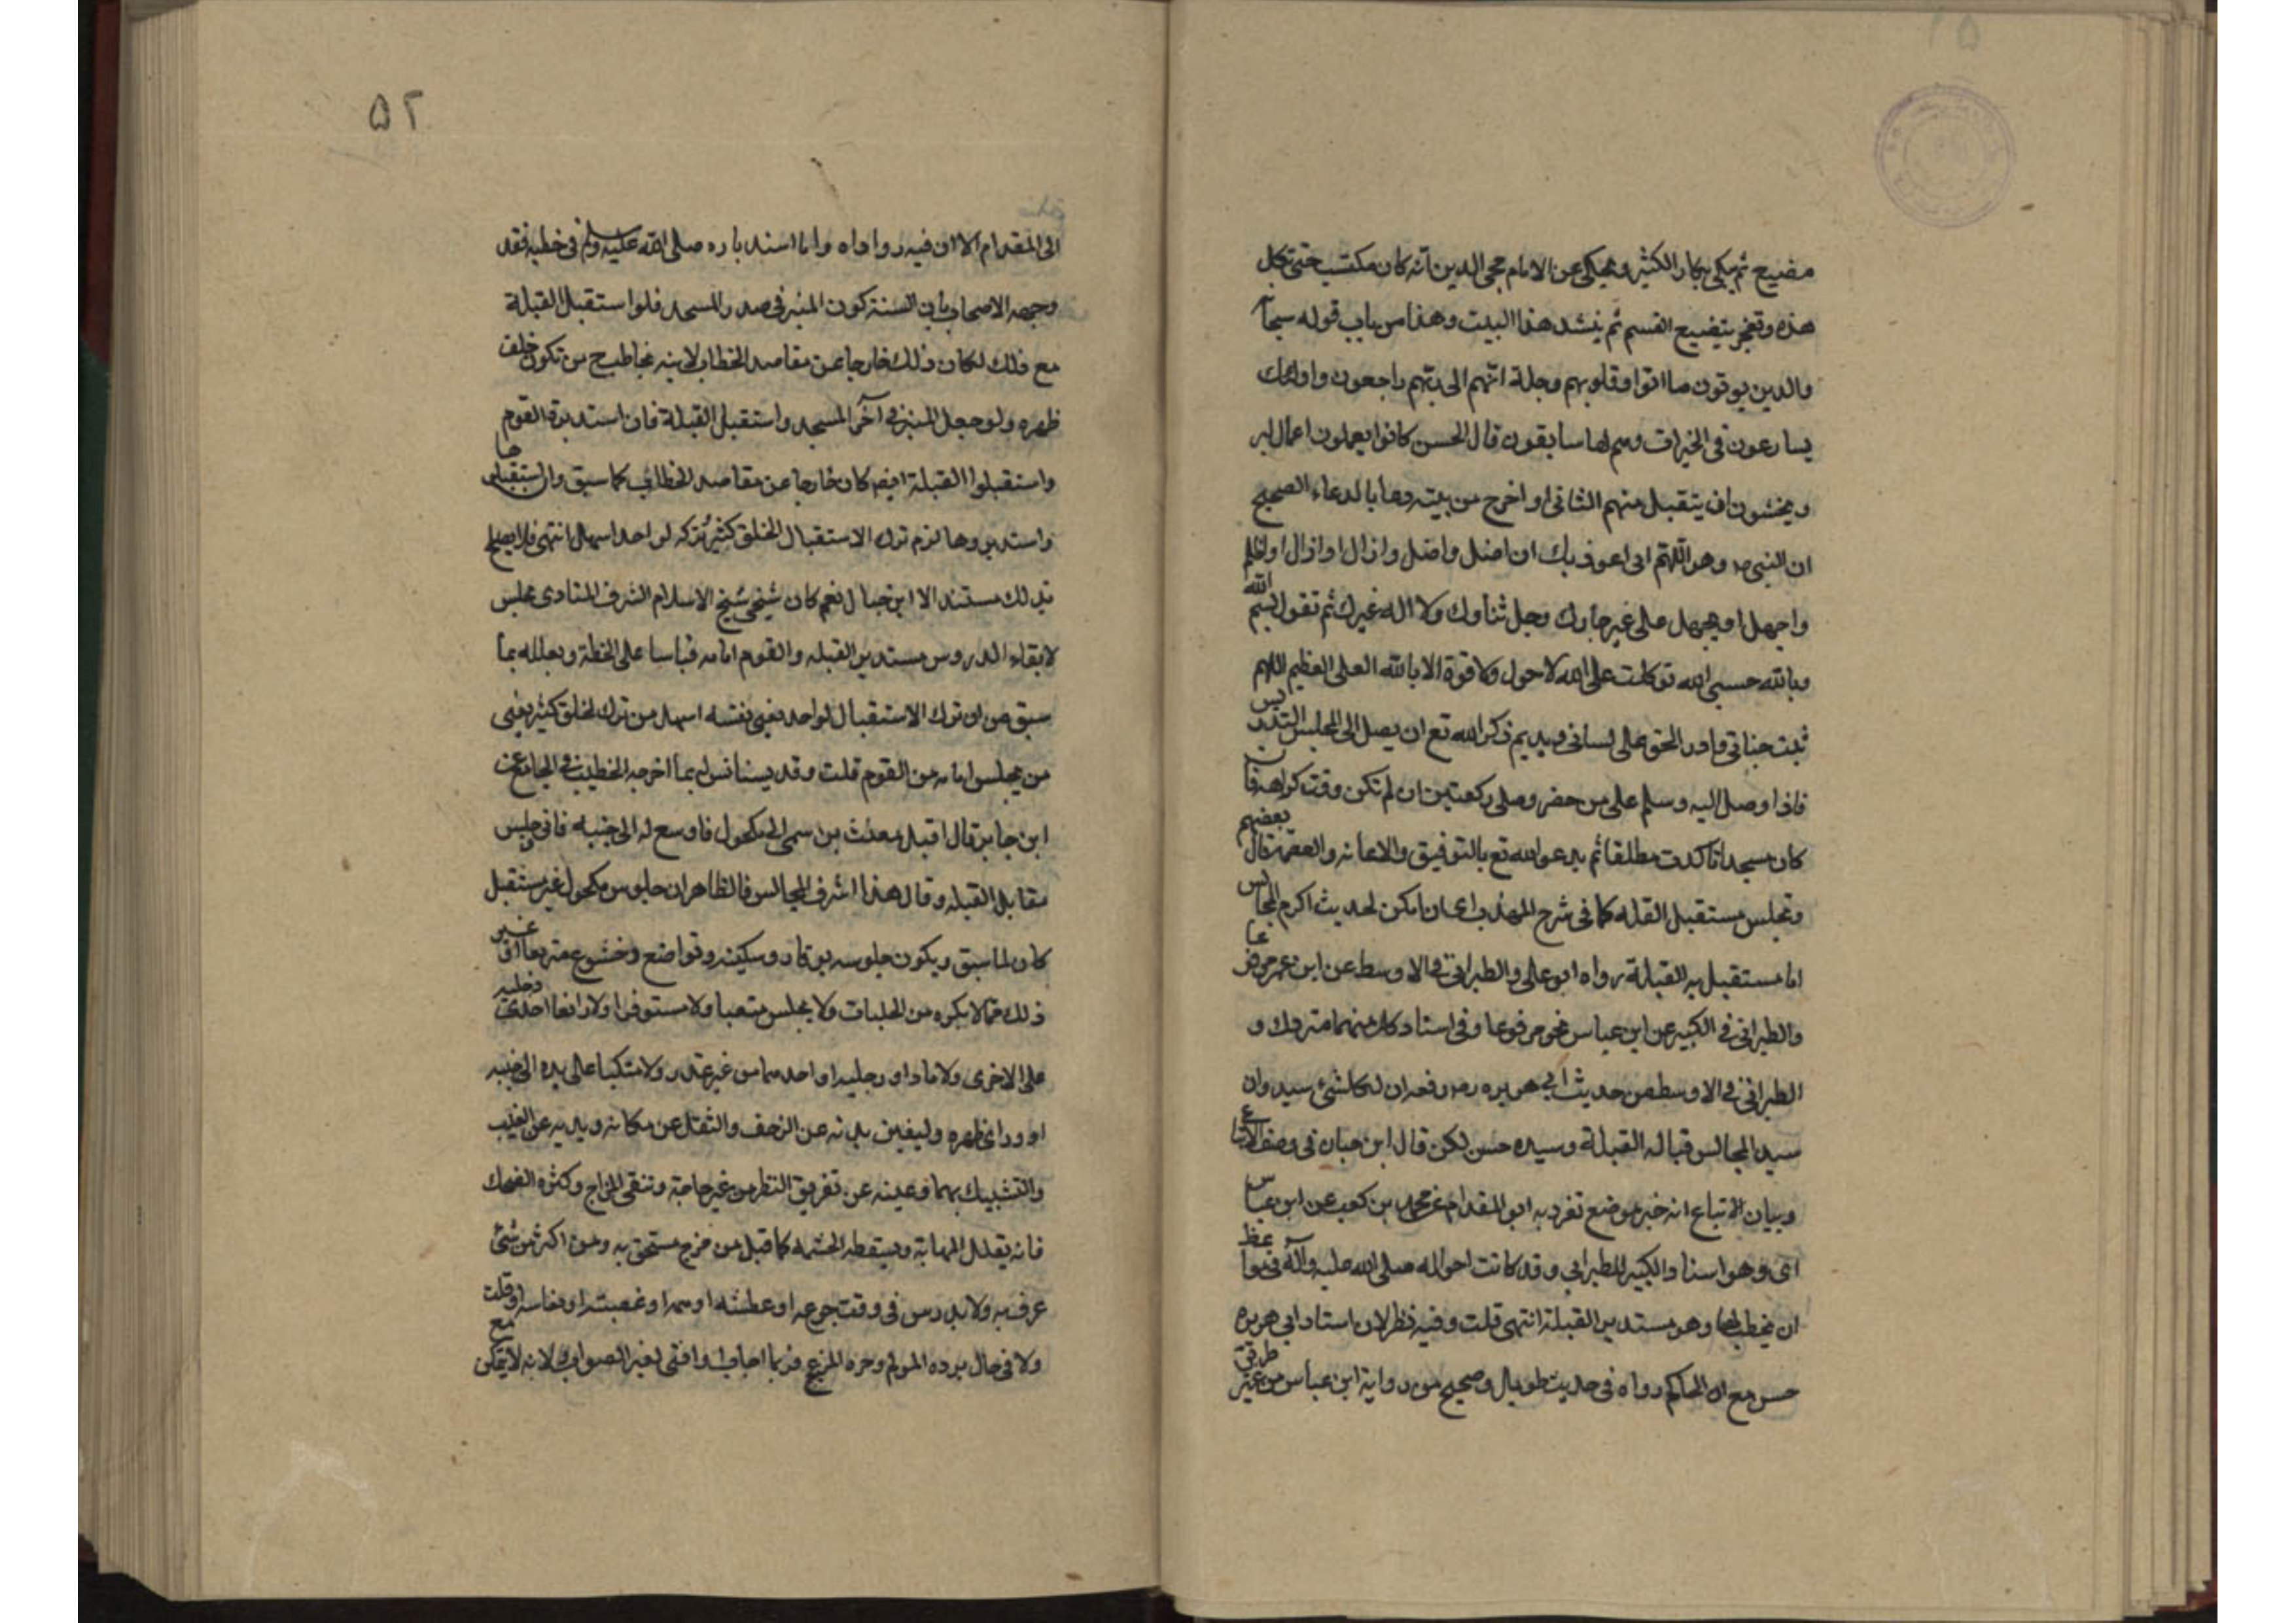 مضيع ثم يبكي بكاء الكثير ويحكى عن الامام محي الدين انه كان مكتسب حتى تكل
هذه وتعجز بتضييع القسم ثم ينشد هذا البيت وهذا من باب قوله سبحا
والدين يوتون ما اتوا وقلوبهم وجلة انهم الى ربهم راجعون واولئك
يسارعون في الخيرات وهم لها سابقون قال الحسن كانوا يعملون اعمال البر
ويخشون ان يتقبل منهم الثاني اذا خرج من بيته دعا بالدعاء الصحيح
ان النبي ص وهو اللهم اني اعوذ بك ان اضل واضل وازال او ازال او اظلم
واجهل او يجهل على عز جارك وجل ثناوك ولا اله غيرك ثم تقول بسم الله
وبالله حسبي الله توكلت على الله لا حول ولا قوة الا بالله العلى العظيم اللهم
ثبت جناني وادر الحق على لساني ويديم ذكر الله تع ان يصل الى المجلس التدريس
فاذا وصل اليه وسلم على من حضر وصلى ركعتين ان لم تكن وقت كراهه فان
كان مسجدا تاكدت مطلقا ثم يدعو الله تع بالتوفيق والاعانه والعصمه قال بعضهم
وتجلس مستقبل القبله كما في شرح المهذب اى ان امكن لحديث اكرم المجالس
اما مستقبل به القبلة رواه ابو يعلى والطبراني في الاوسط عن ابن عمر مرفوعا
والطبراني في الكبير عن ابن عباس نحو مرفوعا وفي اسناد كل منهما متروك و
الطبراني في الاوسط من حديث ابي هريره رص رفعه ان لكل شئ سيد وان
سيد المجالس قباله القبلة وسيده حسن لكن قال ابن حبان في وصف الاتباع
وبيان الابتداع انه خبر موضع تفرد به ابو المقدام عن محمد بن كعب عن ابن عباس
اى وهو اسناد الكبير للطبراني وقد كانت احواله صلى الله عليه وآله في مواعظ
ان يخطب لها وهو مستدبر القبلة انتهى قلت وفيه نظر لان اسناد ابي هريره
حسن مع ان الحاكم رواه في حديث طويل وصحيح من رواية ابن عباس من غير طريق
۵۲
الى المقدام الا ان فيه رواداه واما استدباره صلى الله عليه وسلم في خطبه فقد
وجهه الاصحاب بان السنة كون المنبر في صدر المسجد فلو استقبل القبلة
مع ذلك لكان ذلك خارجا عن مقاصد الخطاب لانه يخاطب من تكون خلف
ظهره ولو جعل المنبر في آخر المسجد واستقبل القبلة فان استدبره القوم
واستقبلوا القبلة ايضا كان خارجا عن مقاصد الخطاب كما سبق وان استقبلها
واستدبروها لزم ترك الاستقبال لخلق كثير وتركه لواحد اسهل انتهى فلا يصلح
بذلك مستند الا ابن حبال نعم كان شيخي شيخ الاسلام الشرف المناوى مجلس
لالقاء الدروس مستدبر القبله والقوم امامه قياسا على الخطبة ويعلله بما
سبق من ان ترك الاستقبال لواحد يعني نفسه اسهل من ترك لخلق كثير يعني
من يجلس امامه من القوم قلت وقد يستانس له بما اخرجه الخطيب في الجامع عن
ابن جابر قال اقبل معدث بن سمى الى مكحول فاوسع له الى جنبه فابى وجلس
مقابل القبله وقال هذا اشرف المجالس فالظاهر ان جلوس مكحول غير مستقبل
كان لما سبق ويكون جلوسه بوقار وسكينه وتواضع وخشوع متربعا او غير
ذلك مما لا يكره من الجلسات ولا يجلس متعبا ولا مستوفزا ولا رافعا احدى رجليه
على الاخرى ولا مادا ورجليه او احدهما من غير عذر ولا متكيا على يده الى جنبه
او وراء ظهره وليصن بدنه عن الزحف والثقل عن مكانه ويديه عن العبث
والتشبيك بهما وعينه عن تفريق النظر من غير حاجة وتنقى المزاح وكثره الضحك
فانه يقلل المهابة ويسقط الحشمه كما قيل من مزح ستحق به ومن اكثر من شئ
عرف به ولا يدرس في وقت جوعه او عطشه او همه او غضبه او نعاسه او قلت
ولا في حال برده المولم وحره المزعج فربما اجاب او افتى بغير الصواب لانه لا يتمكن مع